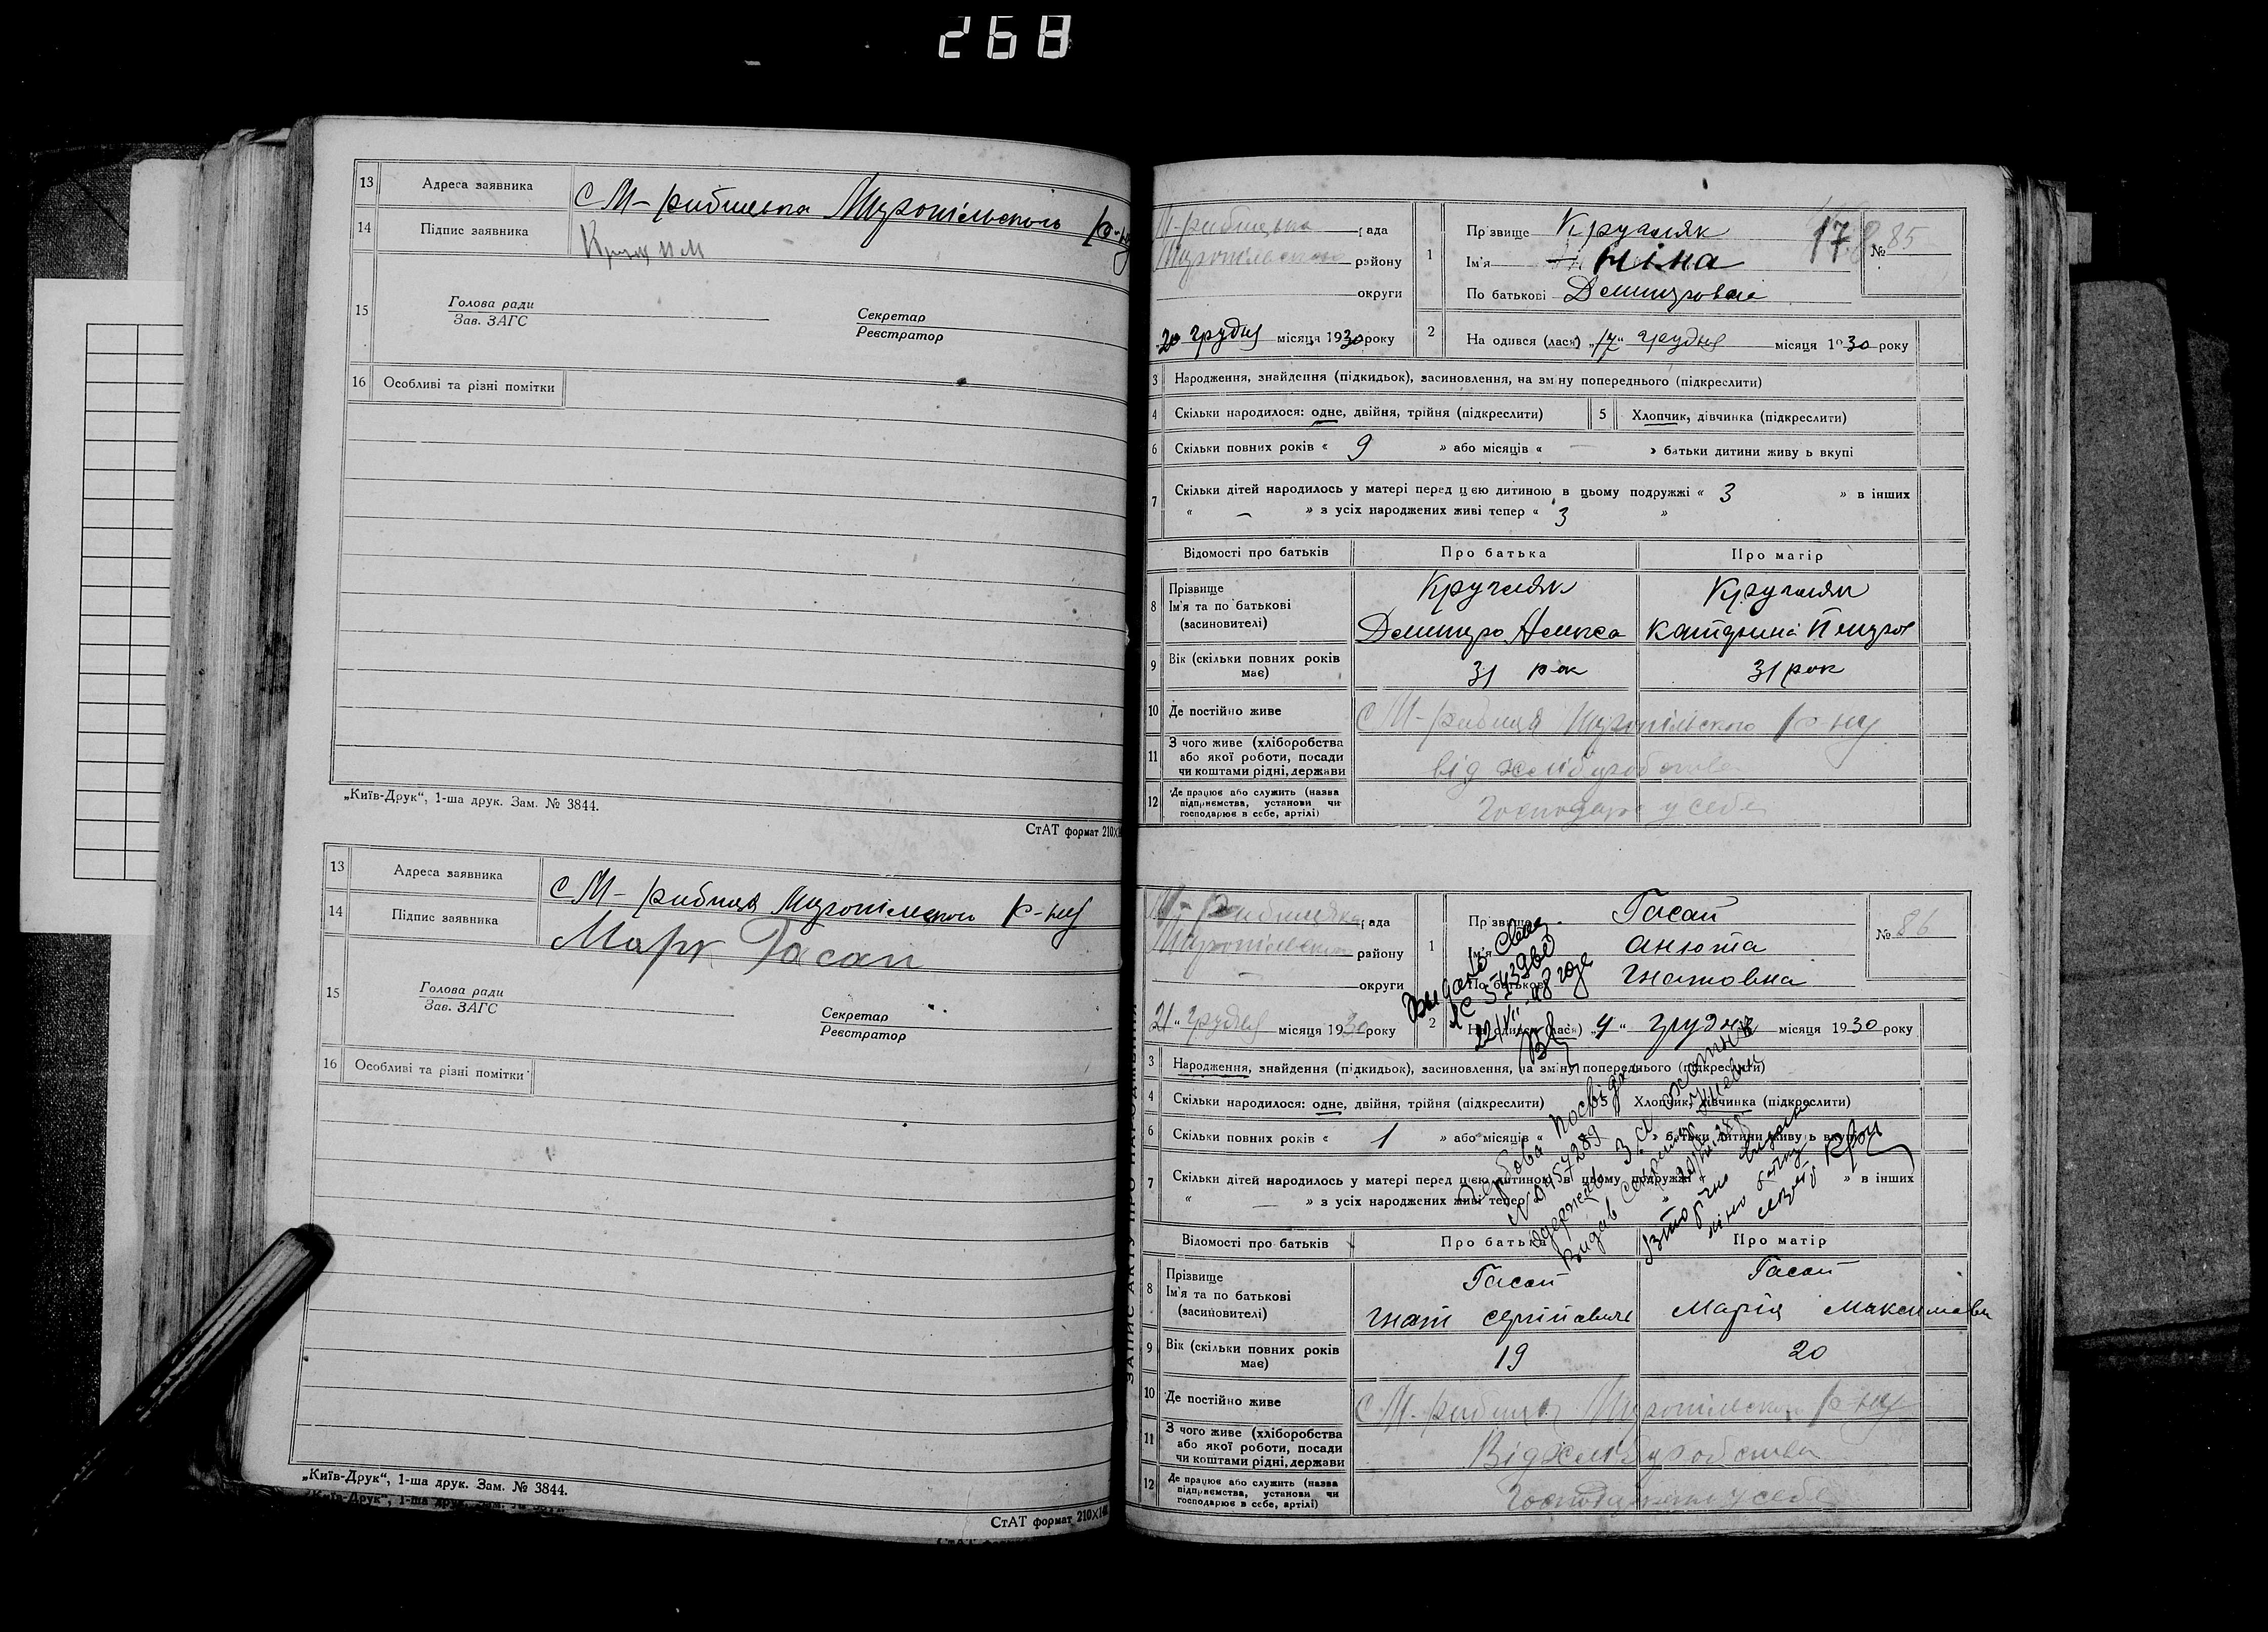 268
13 Адреса заявника С М-рибицька Муропільського р-ну
14 Підпис заявника
15 Голова ради
Зав. ЗАГС
Секретар
Реєстратор
16 Особливі та різні помітки
„Київ-Друк“, 1-ша друк. Зам. № 3844.
СтАТ формат 210×1
13 Адреса заявника С М-рибиця Муропільського р-ну
14 Підпис заявника Марк Гасай
15 Голова ради
Зав. ЗАГС
Секретар
Реєстратор
16 Особливі та різні помітки
„Київ-Друк“, 1-ша друк. Зам. № 3844.
СтАТ формат 210×14
ЗАПИС АКТУ ПРО НАРОДЖЕННЯ
М-рибицька рада
Муропільського району
округи
„20 грудня місяця 1930 року
1 Прізвище Кругляк
Ім'я Ніна
По батькові Демитровна
178
№ 85
2 На одився (лася) „17“ грудня місяця 1930 року
3 Народження, знайдення (підкидьок), засиновлення, на зміну попереднього (підкреслити)
4 Скільки народилося: одне, двійня, трійня (підкреслити) 5 Хлопчик, дівчинка (підкреслити)
6 Скільки повних років « 9 » або місяців « — » батьки дитини живуть вкупі
7 Скільки дітей народилось у матері перед цією дитиною в цьому подружжі « 3 » в інших
« — » з усіх народжених живі тепер « 3 »
Відомості про батьків Про батька Про матір
8 Прізвище Кругляк Кругляк
Ім'я та по батькові
(засиновителі) Демитро Алекса Катерина Петров
9 Вік (скільки повних років має) 31 рок 31 рок
10 Де постійно живе С М-рибиця Муропільського р-ну
11 З чого живе (хліборобства
або якої роботи, посади
чи коштами рідні, держави від хліборобства
12 Де працює або служить (назва
підприємства, установи чи
господарює в себе, артілі) Господарює у себе
М-рибицька рада
Муропільського району
округи
21 „ грудня місяця 1930 року
1 Прізвище Гасай
Ім'я Анюта
По батькові Гнатовна
№ 86
Видано
22/VII-48 года
2 На одився (лася) „4“ грудня місяця 1930 року
3 Народження, знайдення (підкидьок), засиновлення, на зміну попереднього (підкреслити)
4 Скільки народилося: одне, двійня, трійня (підкреслити) 5 Хлопчик, дівчинка (підкреслити)
6 Скільки повних років « 1 » або місяців « » батьки дитини живуть вкупі
7 Скільки дітей народилось у матері перед цією дитиною в цьому подружжі « » в інших
« — » з усіх народжених живі тепер
Відомості про батьків Про батька Про матір
8 Прізвище Гасай Гасай
Ім'я та по батькові
(засиновителі) Гнат Сергійович Марія Максимовн
9 Вік (скільки повних років має) 19 20
10 Де постійно живе С М-рибиця Муропільського р-ну
11 З чого живе (хліборобства
або якої роботи, посади
чи коштами рідні, держави Від хліборобства
12 Де працює або служить (назва
підприємства, установи чи
господарює в себе, артілі) у себе